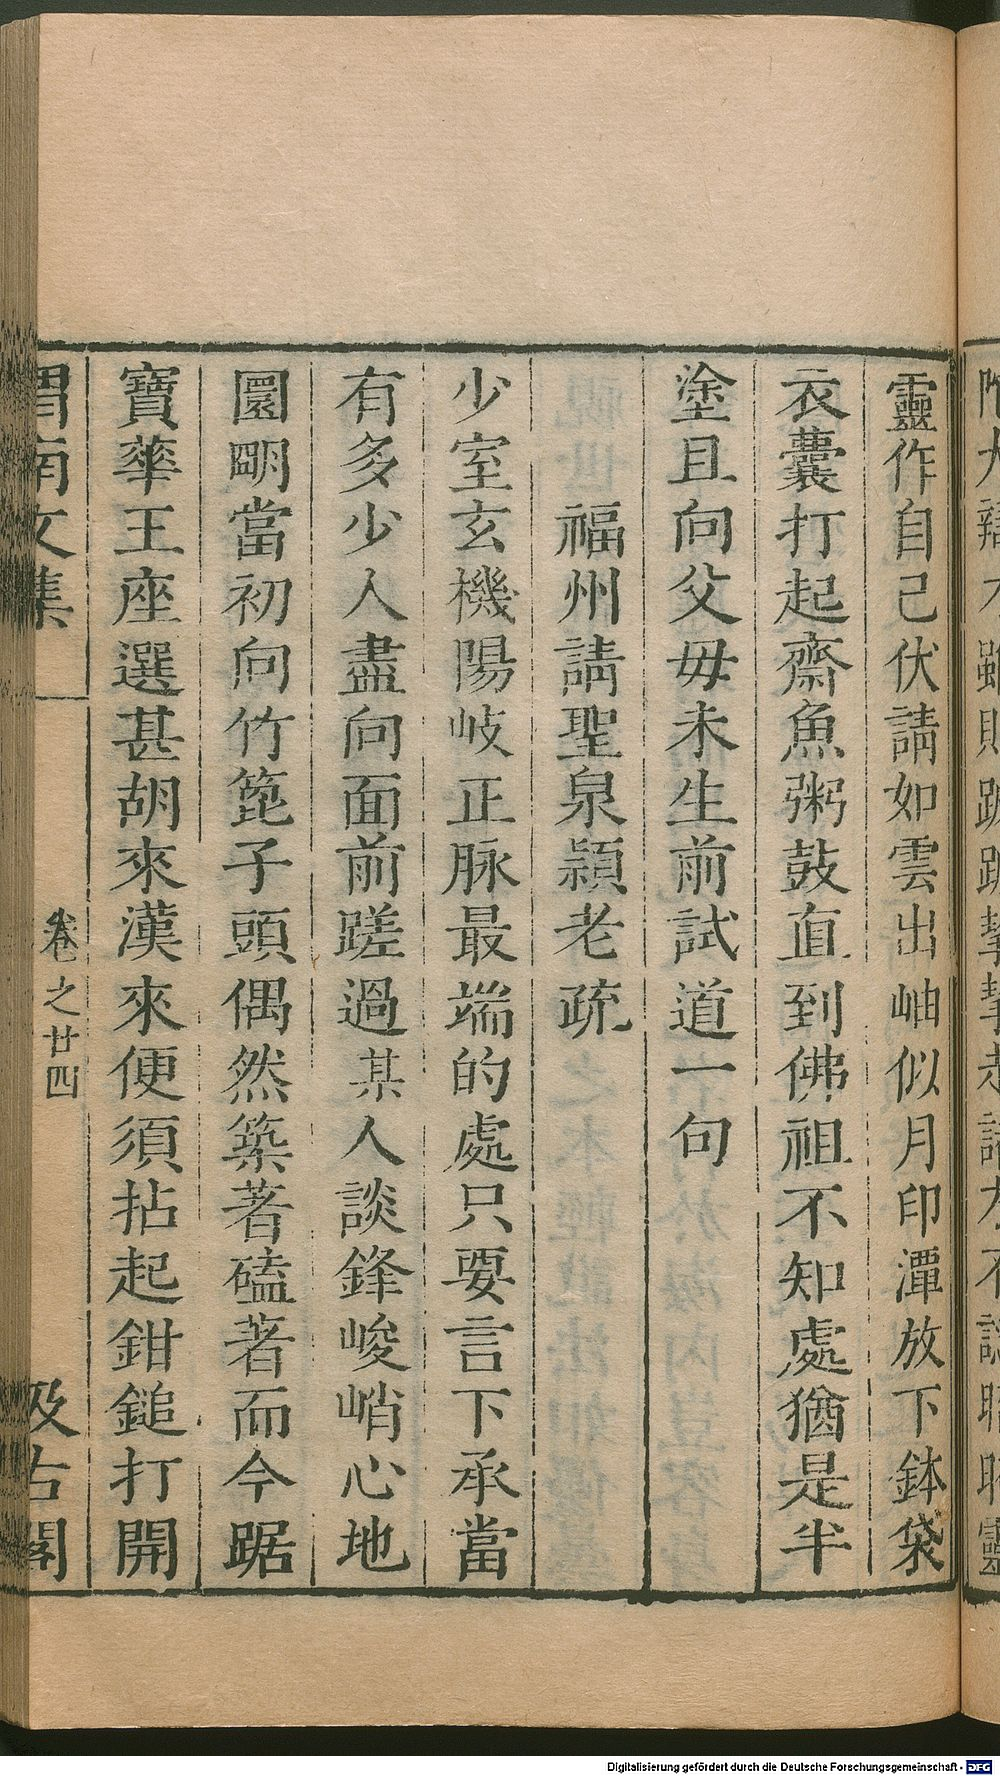 靈作自己伏請如雲出岫似月印潭放下鉢袋
衣囊打起齋魚粥鼓直到佛祖不知處猶是半
塗且向父母未生前試道一句
福州請聖泉潁老疏
少室玄機陽岐正脉最端的處只要言下承當
有多少人盡向面前蹉過某人談鋒峻峭心地
圓明當初向竹箆子頭偶然築著磕著而今踞
寶華王座選甚胡來漢來便須拈起鉗鎚打開
渭南文集
卷之廿四
汲古閣
Digitalisierung gefördert durch die Deutsche Forschungsgemeinschaft - DFG